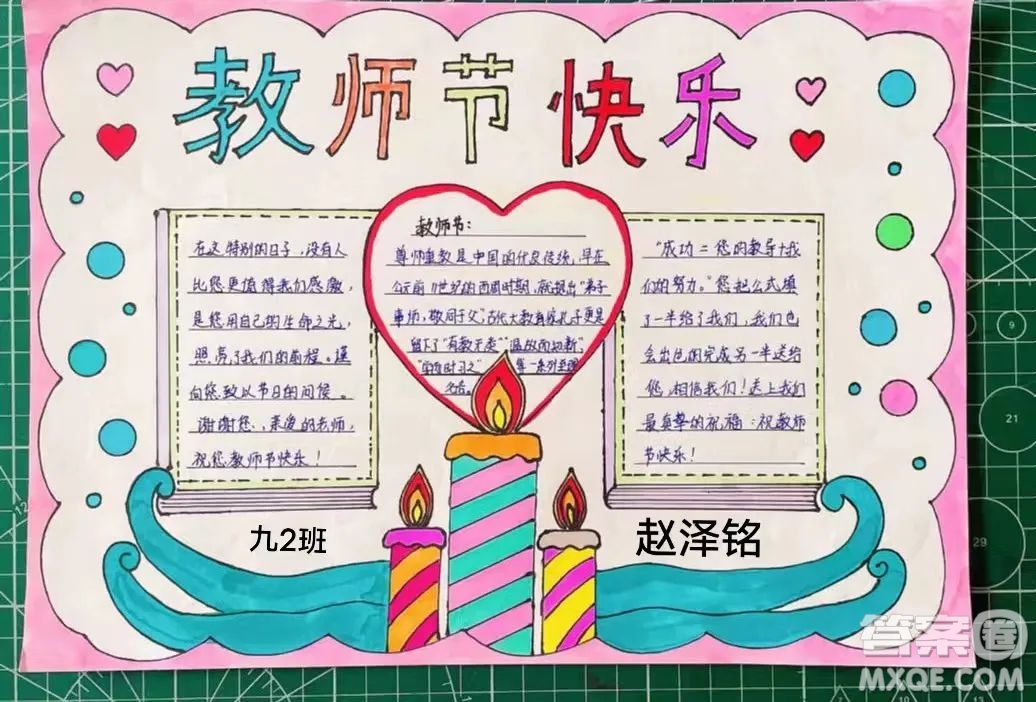 教师节快乐
在这特别的日子，没有人
比您更值得我们感激，
是您用自己的生命之光，
照亮了我们的前程。谨
向您致以节日的问候。
谢谢您，亲爱的老师，
祝您教师节快乐！
教师节：
尊师重教是中国的优良传统，早在
公元前11世纪的西周时期，就提出"弟子
事师，敬同于父"，古代大教育家孔子更是
留下了"有教无类""温故而知新"，
"学而时习之" 等一系列至理
名言。
"成功=您的教导+我
们的努力。"您把公式填
了一半给了我们，我们也
会出色的完成另一半送给
您，相信我们！送上我们
最真挚的祝福：祝教师
节快乐！
九2班
赵泽铭
答案圈
MXQE.COM
9
21
12
29